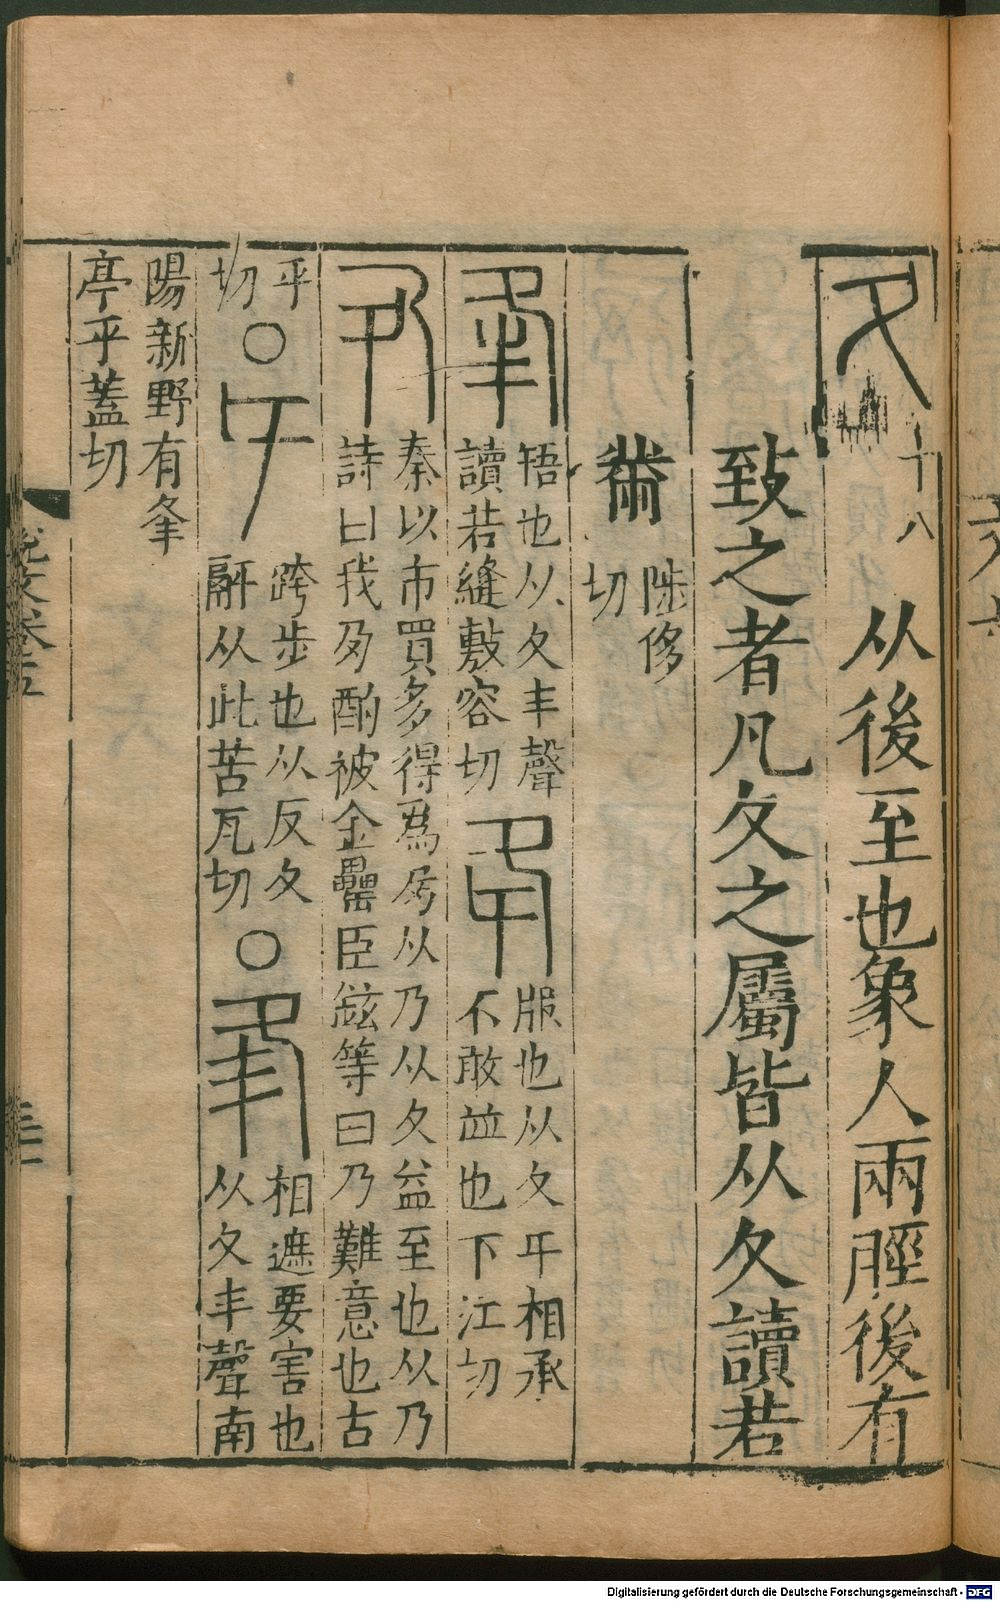 夂 十八 从後至也象人兩脛後有
致之者凡夂之屬皆从夂讀若
黹 陟侈切
夆 啎也从夂丰聲讀若縫敷容切 夅 服也从夂𡕒相承不敢並也下江切
夃 秦以市買多得爲夃从乃从夂益至也从乃詩曰我夃酌彼金罍臣鉉等曰乃難意也古
乎切〇𡕒 跨步也从反夂䣄从此苦瓦切〇夆 相遮要害也从夂丰聲南
陽新野有夆亭乎蓋切
說文卷五
Digitalisierung gefördert durch die Deutsche Forschungsgemeinschaft - DFG